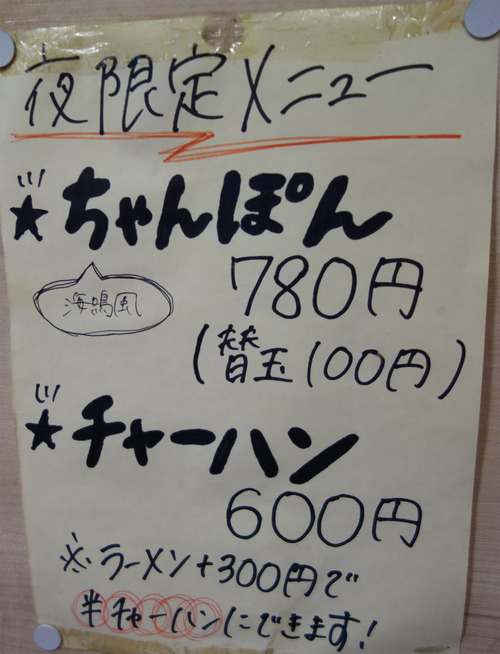 夜限定メニュー
★ちゃんぽん
海鳴風
780円
(替玉100円)
★チャーハン
600円
※ラーメン+300円で
半チャーハンにできます!